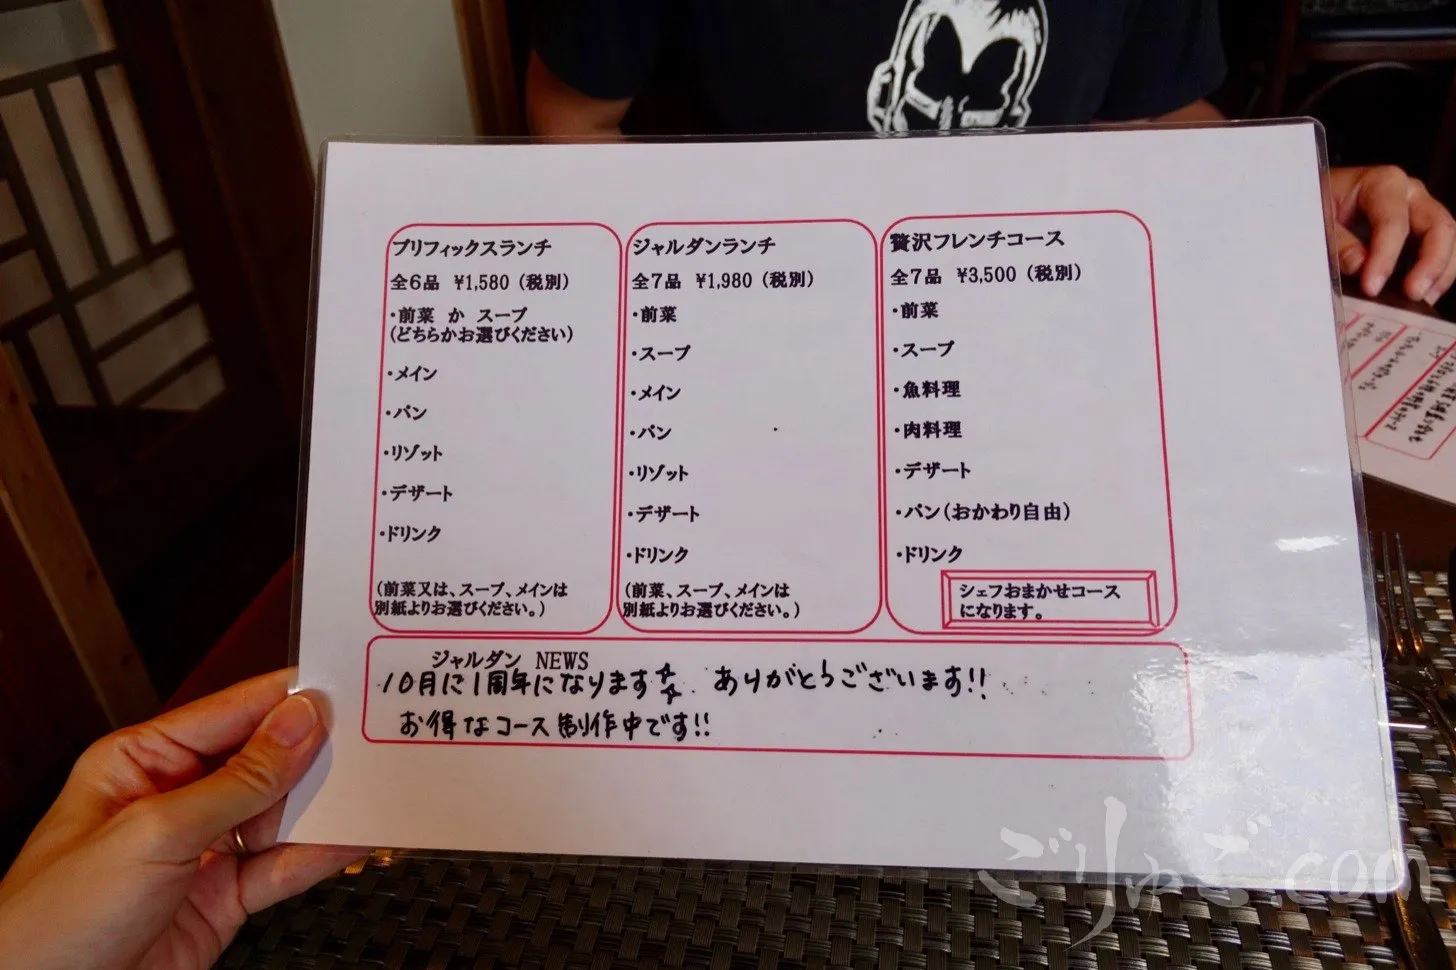 プリフィックスランチ
全６品 ¥1,580（税別）
・前菜 か スープ
（どちらかお選びください）
・メイン
・パン
・リゾット
・デザート
・ドリンク
（前菜又は、スープ、メインは
別紙よりお選びください。）
ジャルダンランチ
全７品 ¥1,980（税別）
・前菜
・スープ
・メイン
・パン
・リゾット
・デザート
・ドリンク
（前菜、スープ、メインは
別紙よりお選びください。）
贅沢フレンチコース
全７品 ¥3,500（税別）
・前菜
・スープ
・魚料理
・肉料理
・デザート
・パン（おかわり自由）
・ドリンク
シェフおまかせコース
になります。
ジャルダン NEWS
10月に1周年になります ありがとうございます!!
お得なコース制作中です!!
ごりゅご.com